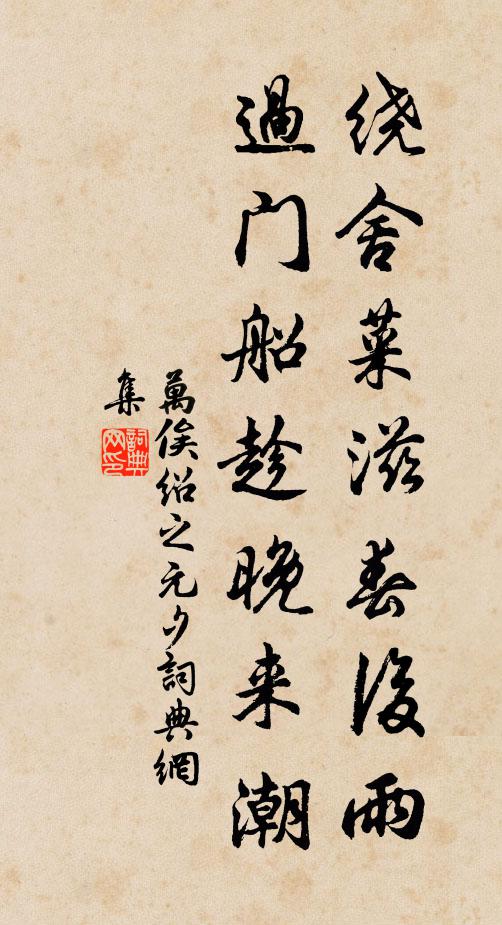 绕舍菜滋春后雨
過门船趁晚来潮
萬俟绍之元夕詞典網
集
詞典
网印